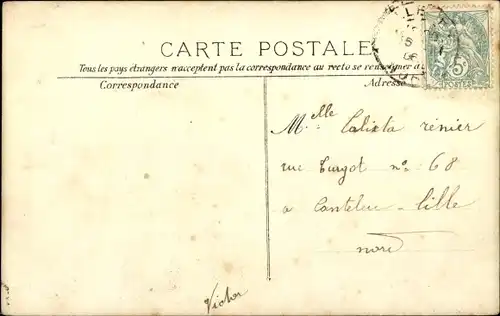 CARTE POSTALE
Tous les pays étrangers n'acceptent pas la correspondance au recto se renseigner à
Correspondance
Adresse
5c
POSTES
Melle Calixta rénier
rue Turgot no 68
a Canteleu - lille
nord
Victor